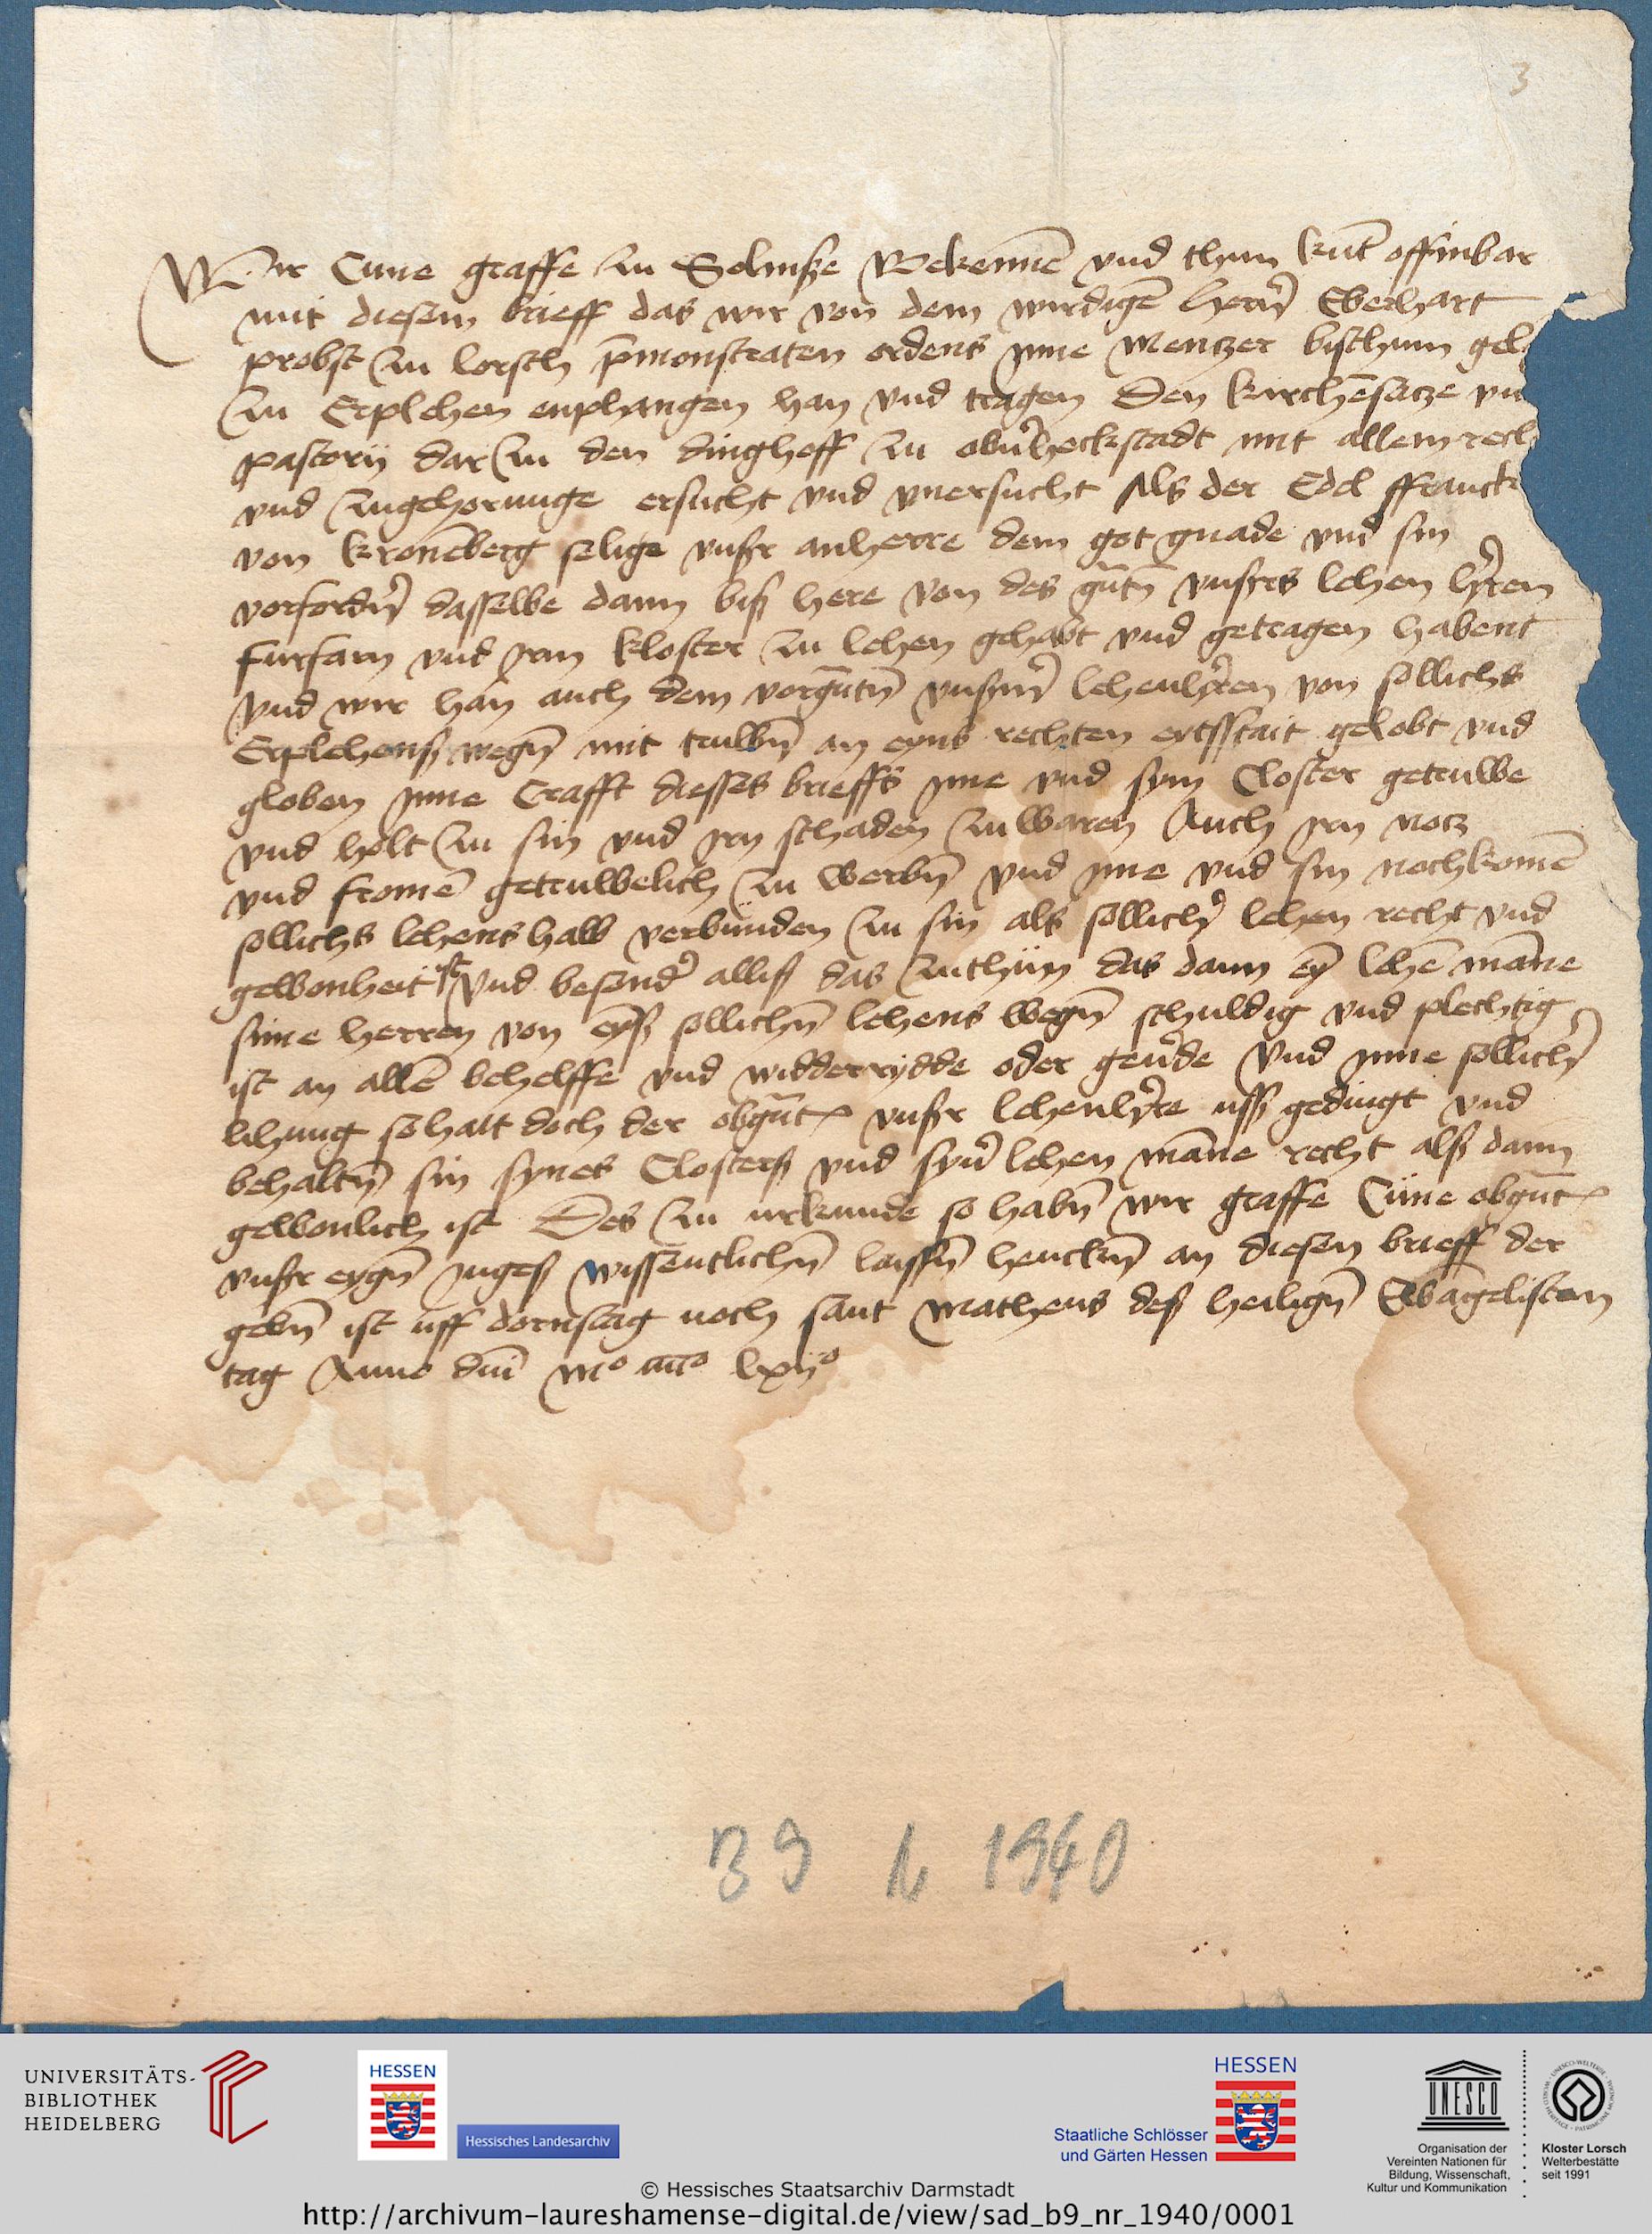 3
Wir Cune graffe zu Solmsze Bekennē vnd thun kūt offinbar
mit diesem brieff das wir von dem wirdigē herr̄ Eberhart
probst zu lorsch p̄monstraten ordens jnne Mentzer bisthum gel
zu Erplehen enphangen han vnd tragen Den kirchēsatze vn
pastory dar zu den dinghoff zu obūheckstadt mit allem rech
vnd zugehorunge ersucht vnd vnersucht Als der Edel ffranck
von kronēberg selige vnser anherre dem got gnade vnd sin
vorfordn̄ dasselbe dann biß here von des gūtn̄ vnsers lehen hr̄ren
furfarn vnd jrm kloster zu lehen gehabt vnd getragen habent
Vnd wir han auch dem vorgūtn̄ vnserm̄ lehenhr̄ren von sollichs
Erplehens wegn̄ mit truwn̄ an eyns rechten eydsstait gelobt vnd
globen jnne Crafft diesses brieffs jme vnd sym Closter getruwe
vnd holt zu sin vnd jrn schaden zu waren Auch jrn notz
vnd fromē getruwelich zu werbn̄ vnd jme vnd sin nochkomē
sollichs lehens halb verbunden zu sin als sollich' lehen recht vnd
gewonheit ist Vnd besond' alliß das zuthun das dann eȳ lehē manne
sime herren von eyß sollichn̄ lehens wegn̄ schuldig vnd plechtig
ist an allē behelffe vnd widderrydde oder geu'de Vnd jnne sollich'
lihung so hatt doch der obgūt vnser lehenhr̄re uß gedingt vnd
behaltn̄ sin synes Closters vnd syn' lehen manne recht alß dann
gewonlich ist Des zu urkunde so habn̄ wir graffe Cune obgūt
vnser eygn̄ jngeß wissentlichn̄ laissn̄ hencken̄ an diesen brieff der
gebn̄ ist uff dornstag noch sant Matheus deß heilign̄ Ewāgelisten
tag Anno dn̄i mº iiiicº lxiiº
B 9 № 1940
UNIVERSITÄTS-
BIBLIOTHEK
HEIDELBERG
HESSEN
Hessisches Landesarchiv
Staatliche Schlösser
und Gärten Hessen
HESSEN
UNESCO
Organisation der
Vereinten Nationen für
Bildung, Wissenschaft,
Kultur und Kommunikation
Kloster Lorsch
Welterbestätte
seit 1991
© Hessisches Staatsarchiv Darmstadt
http://archivum-laureshamense-digital.de/view/sad_b9_nr_1940/0001